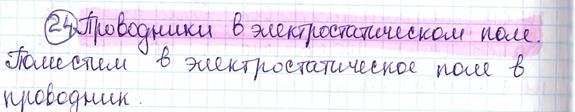 24. Проводники в электростатическом поле.
Поместим в электростатическое поле в
проводник.